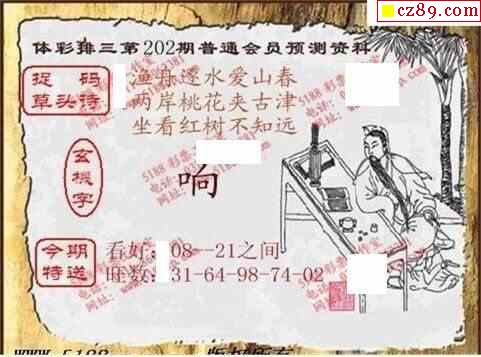 cz89.com
体彩排三第202期普通会员预测资料
捉 码
草头诗
渔舟逐水爱山春
两岸桃花夹古津
坐看红树不知远
玄机字
响
今期
特送
看好:08--21之间
旺数:31-64-98-74-02